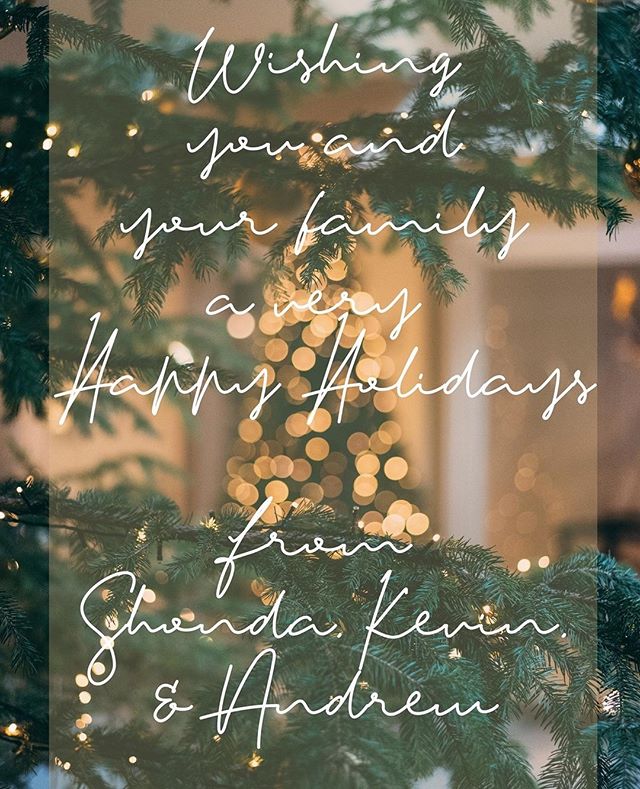 Wishing
you and
your family
a very
Happy Holidays
from
Shonda, Kevin,
& Andrew